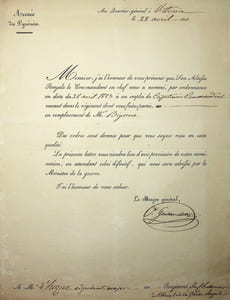 Armée
des Pyrénées.
Au Quartier-général à Vittoria
le 28 avril
Monsieur, j'ai l'honneur de vous prévenir que, Son Altesse
Royale le Commandant en chef vous a nommé, par ordonnance
en date du 26 avril 1823 à un emploi de Capitaine Commandant
vacant dans le régiment dont vous faites partie
en remplacement de Mr.
Des ordres sont donnés pour que vous soyez reçu en cette
qualité.
La présente lettre vous tiendra lieu d'avis provisoire de votre nomi-
nation, en attendant celui définitif, que vous sera adressé par le
Ministre de la guerre.
J'ai l'honneur de vous saluer.
Le Major général,
A Mr. adjudant major